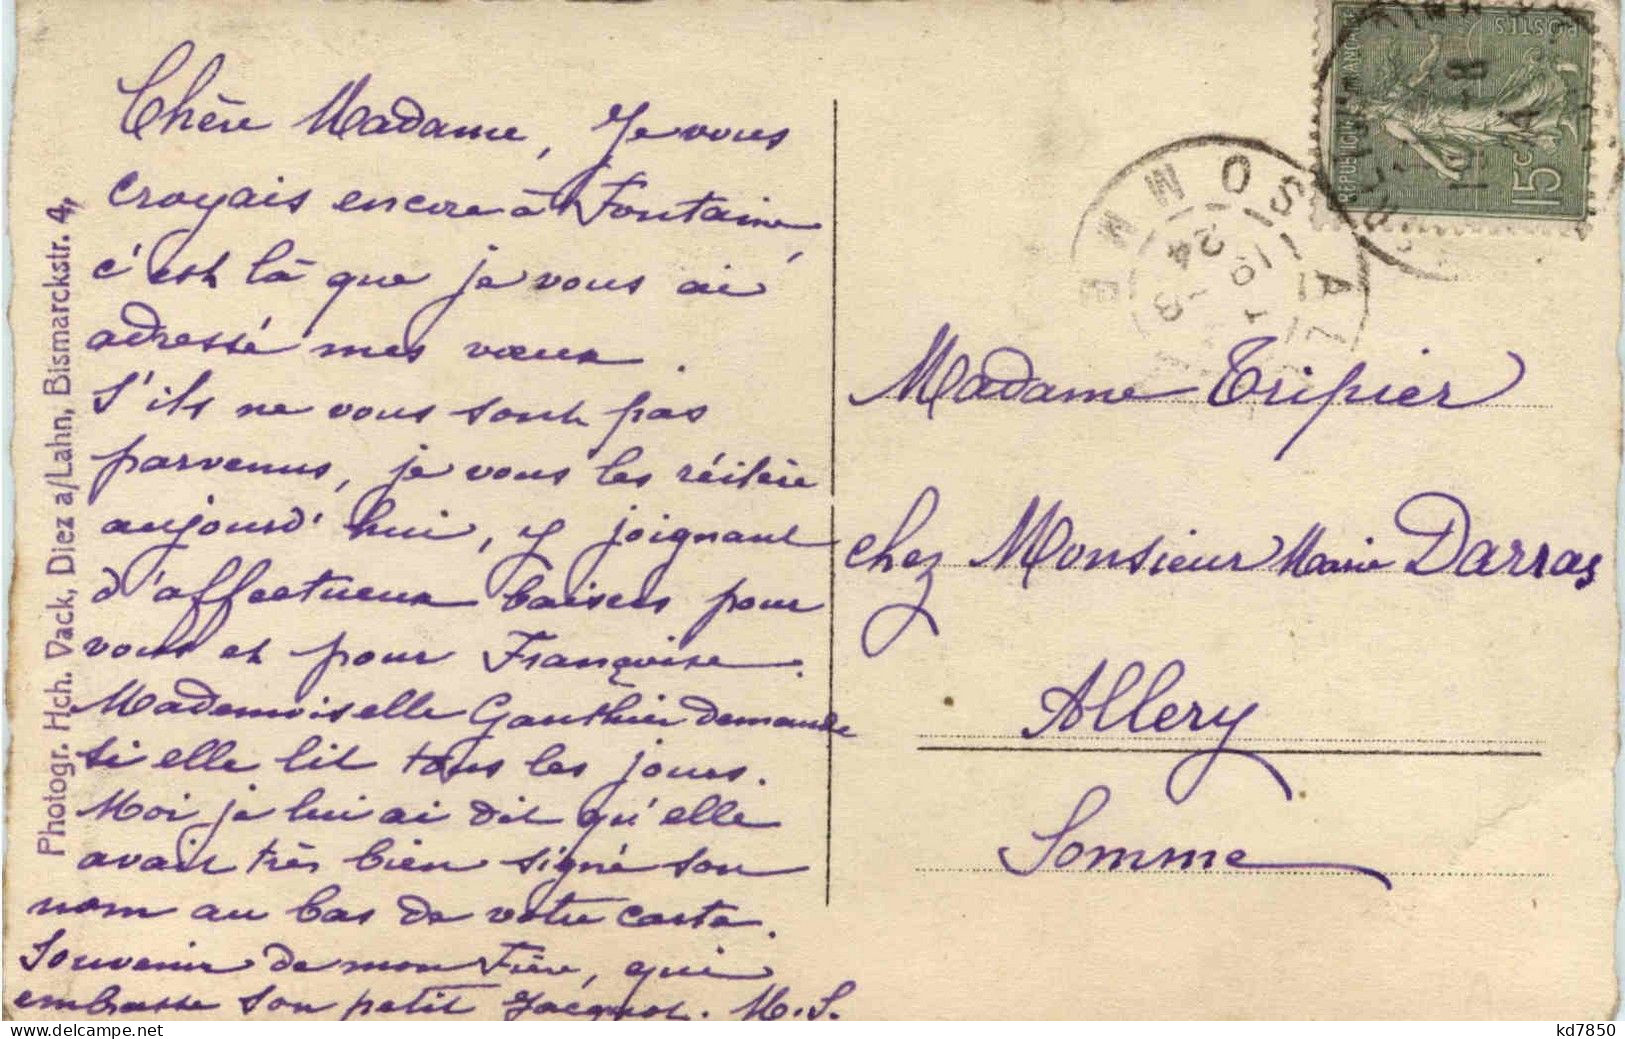 Chère Madame, Je vous
croyais encore à Fontaine,
c'est là que je vous ai
adressé mes vœux.
S'ils ne vous sont pas
parvenus, je vous les réitère
aujourd'hui, y joignant
d'affectueux baisers pour
vous et pour Françoise.
Mademoiselle Gauthier demande
si elle lit tous les jours.
Moi je lui ai dit qu'elle
avait très bien signé son
nom au bas de votre carte.
Souvenir de mon Frère, qui
embrasse son petit Jacquot. M.S.
Photogr. Hch. Vack, Diez a/Lahn, Bismarckstr. 4,
REPUBLIQUE FRANÇAISE
POSTES
15c
SOMME
24
Madame Tripier
chez Monsieur Marie Darras
Allery
Somme
kd7850